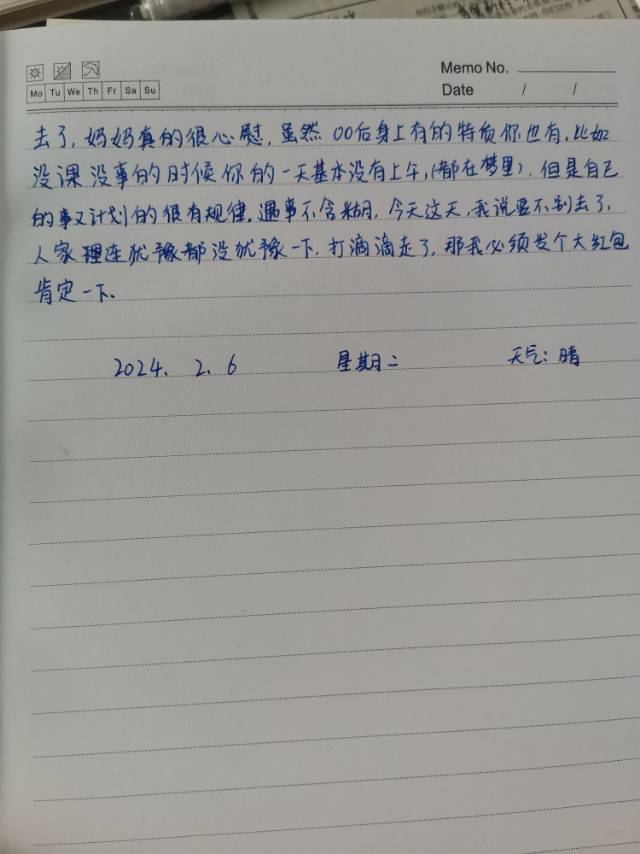 Memo No.
Mo Tu We Th Fr Sa Su
Date / /
去了，妈妈真的很心慰，虽然00后身上有的特质你也有，比如
没课没事的时候你的一天基本没有上午，（都在梦里），但是自己
的事又计划的很有规律，遇事不含糊，今天这天，我说要不别去了，
人家理连犹豫都没犹豫一下，打滴滴走了，那我必须发个大红包
肯定一下、
2024、2、6 星期二 天气：晴